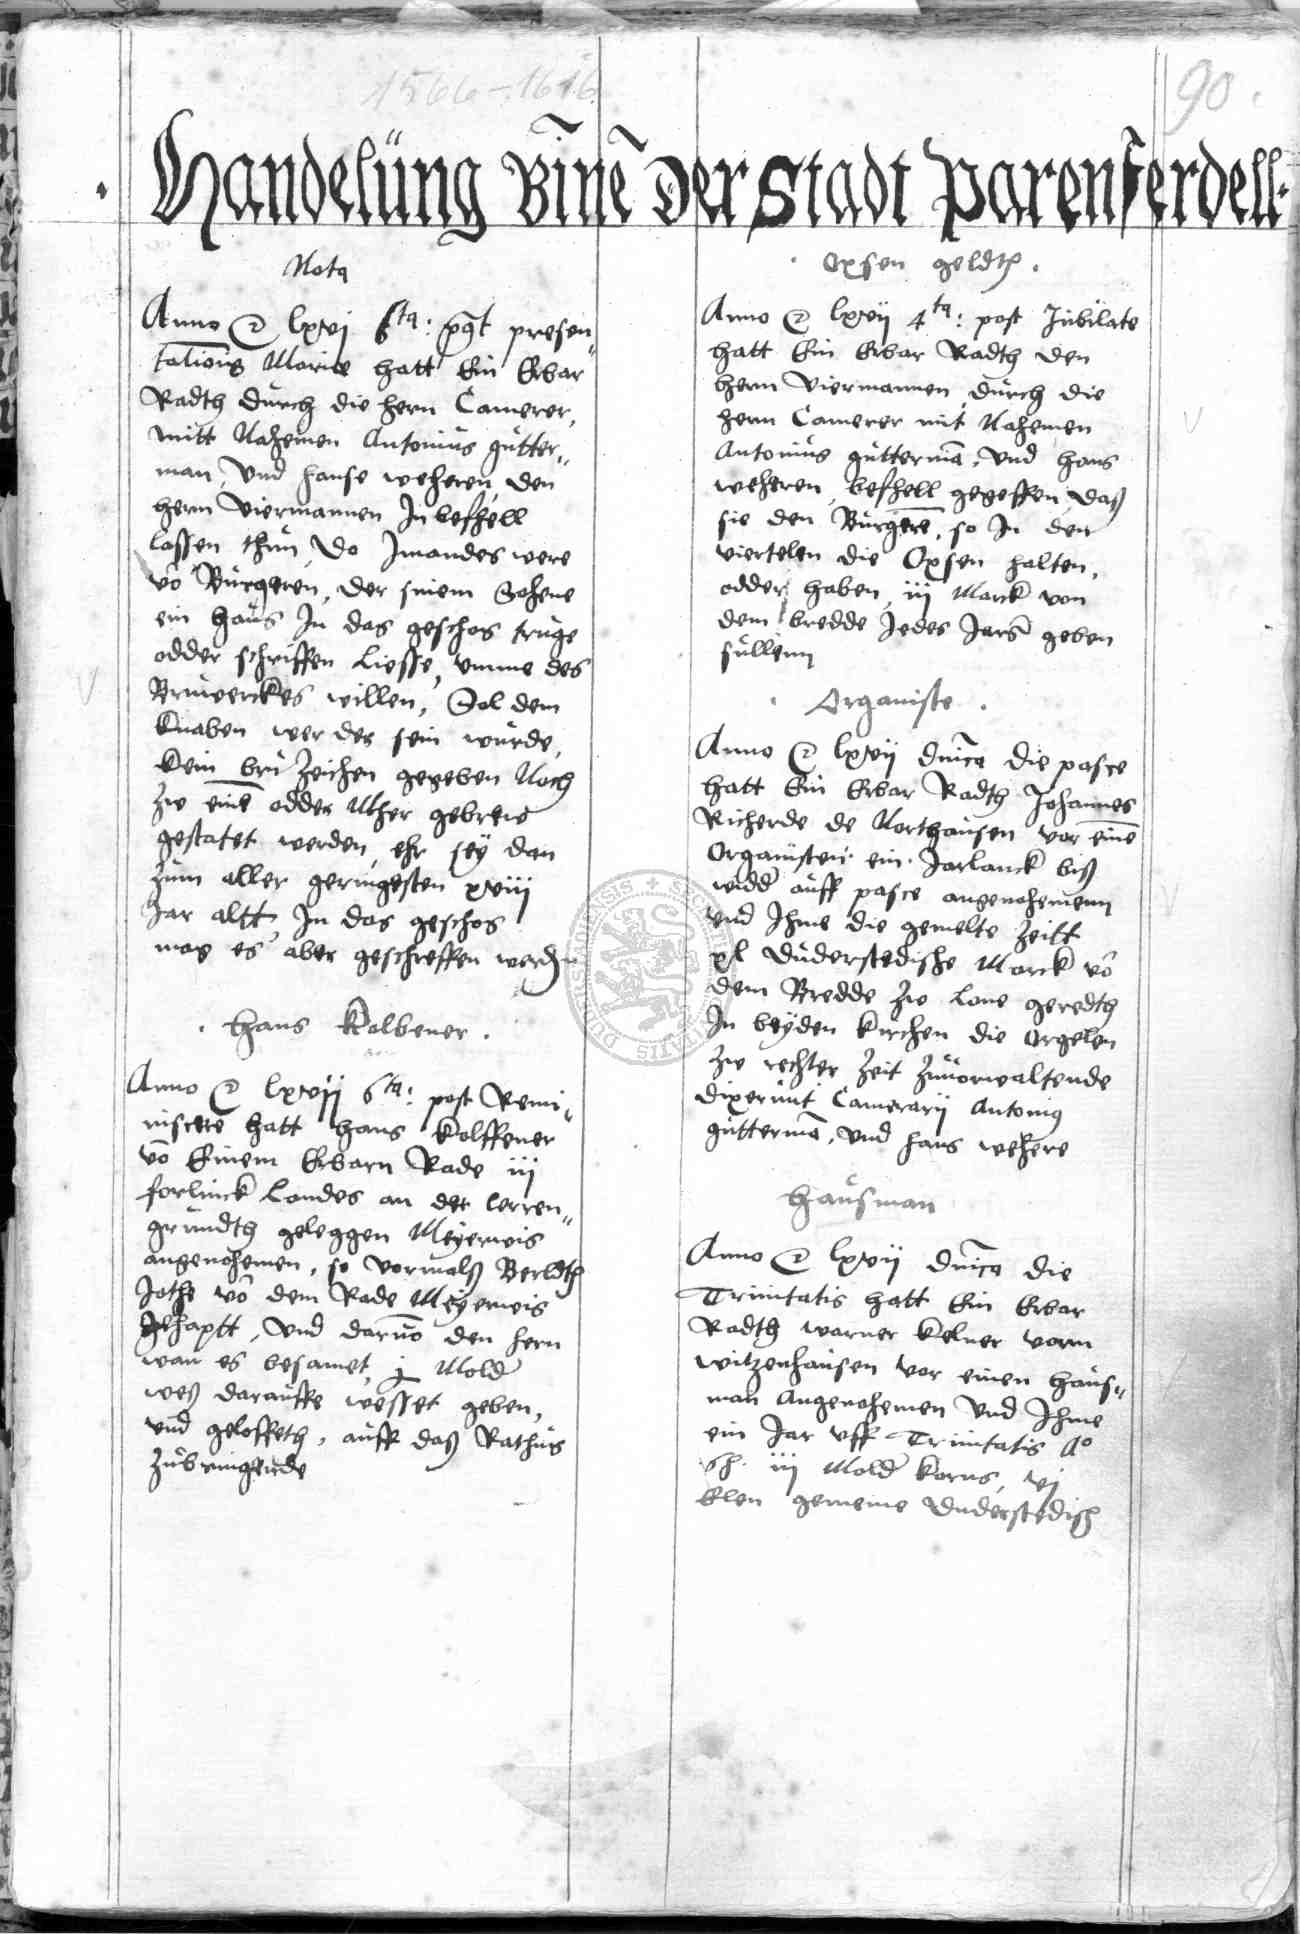 1566-1616
90
Handelüng Binē Der Stadt Parenferdell
Nota
Anno &c lxvi 6ta: post presen„
tationis Marie hatt Ein Erbar
Radth dürch die hern Camerer,
mitt Nahemen Antoniüs gütter„
man, vnd Hanse weheren, den
hern Viermannen In beffhell
lassen thün, Do Jmandes were
vō Bürgeren, der sinem Sohene
ein haüs In das geschos trüge
odder schriffen Liesse, vmme des
Brüwerckes willen, Sol dem
Knaben wer der sein würde,
Kein brü Zeichen gegeben Noch
Zw einē odder Mher gebrews
gestatet werden, ehr sey dan
Züm aller geringesten xviii
Jar altt, In das geschos
mag es aber geschreffen werden
Hans Kolbener
Anno &c lxvij 6ta: post Remi„
niscere hatt Hans Kolffener
vō Einem Erbarn Rade iij
forlinck Landes an der lerren„
gründth geleggen Meyerweis
angenohemen, so vormalß Berldth
Jothe vō dem Rade Meyerweis
gehaptt, Vnd darvō den hern
wan es besamet, j Mold
weß darauffe wesset geben,
vnd geloffeth, aüff daß Rathüs
Zübringende
Oxsen geldth
Anno &c lxvij 4ta: post Jübilate
hatt Ein Erbar Radth den
hern Viermannen dürch die
hern Camerer mit Nahemen
Antoniüs gütterma, Vnd Hans
weheren, beffhell gegeffen, daß
sie den Bürgere, so In den
viertelen die Oxsen halten,
odder haben, iij Marck von
dem bredde Jedes Jars geben
süllenn
Organiste
Anno &c lxvij dnica die pasce
hatt Ein Erbar Radth Johannes
Richerde de Northaüsen vor einē
Organisten ein Jarlanck biß
widd aüff pasce angenohemenn
vnd Jhme die gemelte Zeitt
xl Düderstedische Marck vō
dem Bredde Zw Lone geredth
In beyden Kirchen die Orgelen
Zw rechter Zeit Züvorwaltende
dixerünt Camerarij Antonig
güttermā, Vnd Hans wehere
Haüsman
Anno &c lxvij dnica die
Trinitatis hatt Ein Erbar
Radth warner Kelner vorm
witzenhaüsen vor einen haüs„
man Angenohemen Vnd Jhme
ein Jar vff Trinitatis Ao
68. iij Mold Korns, vj
Elen gemeine Düderstedisch